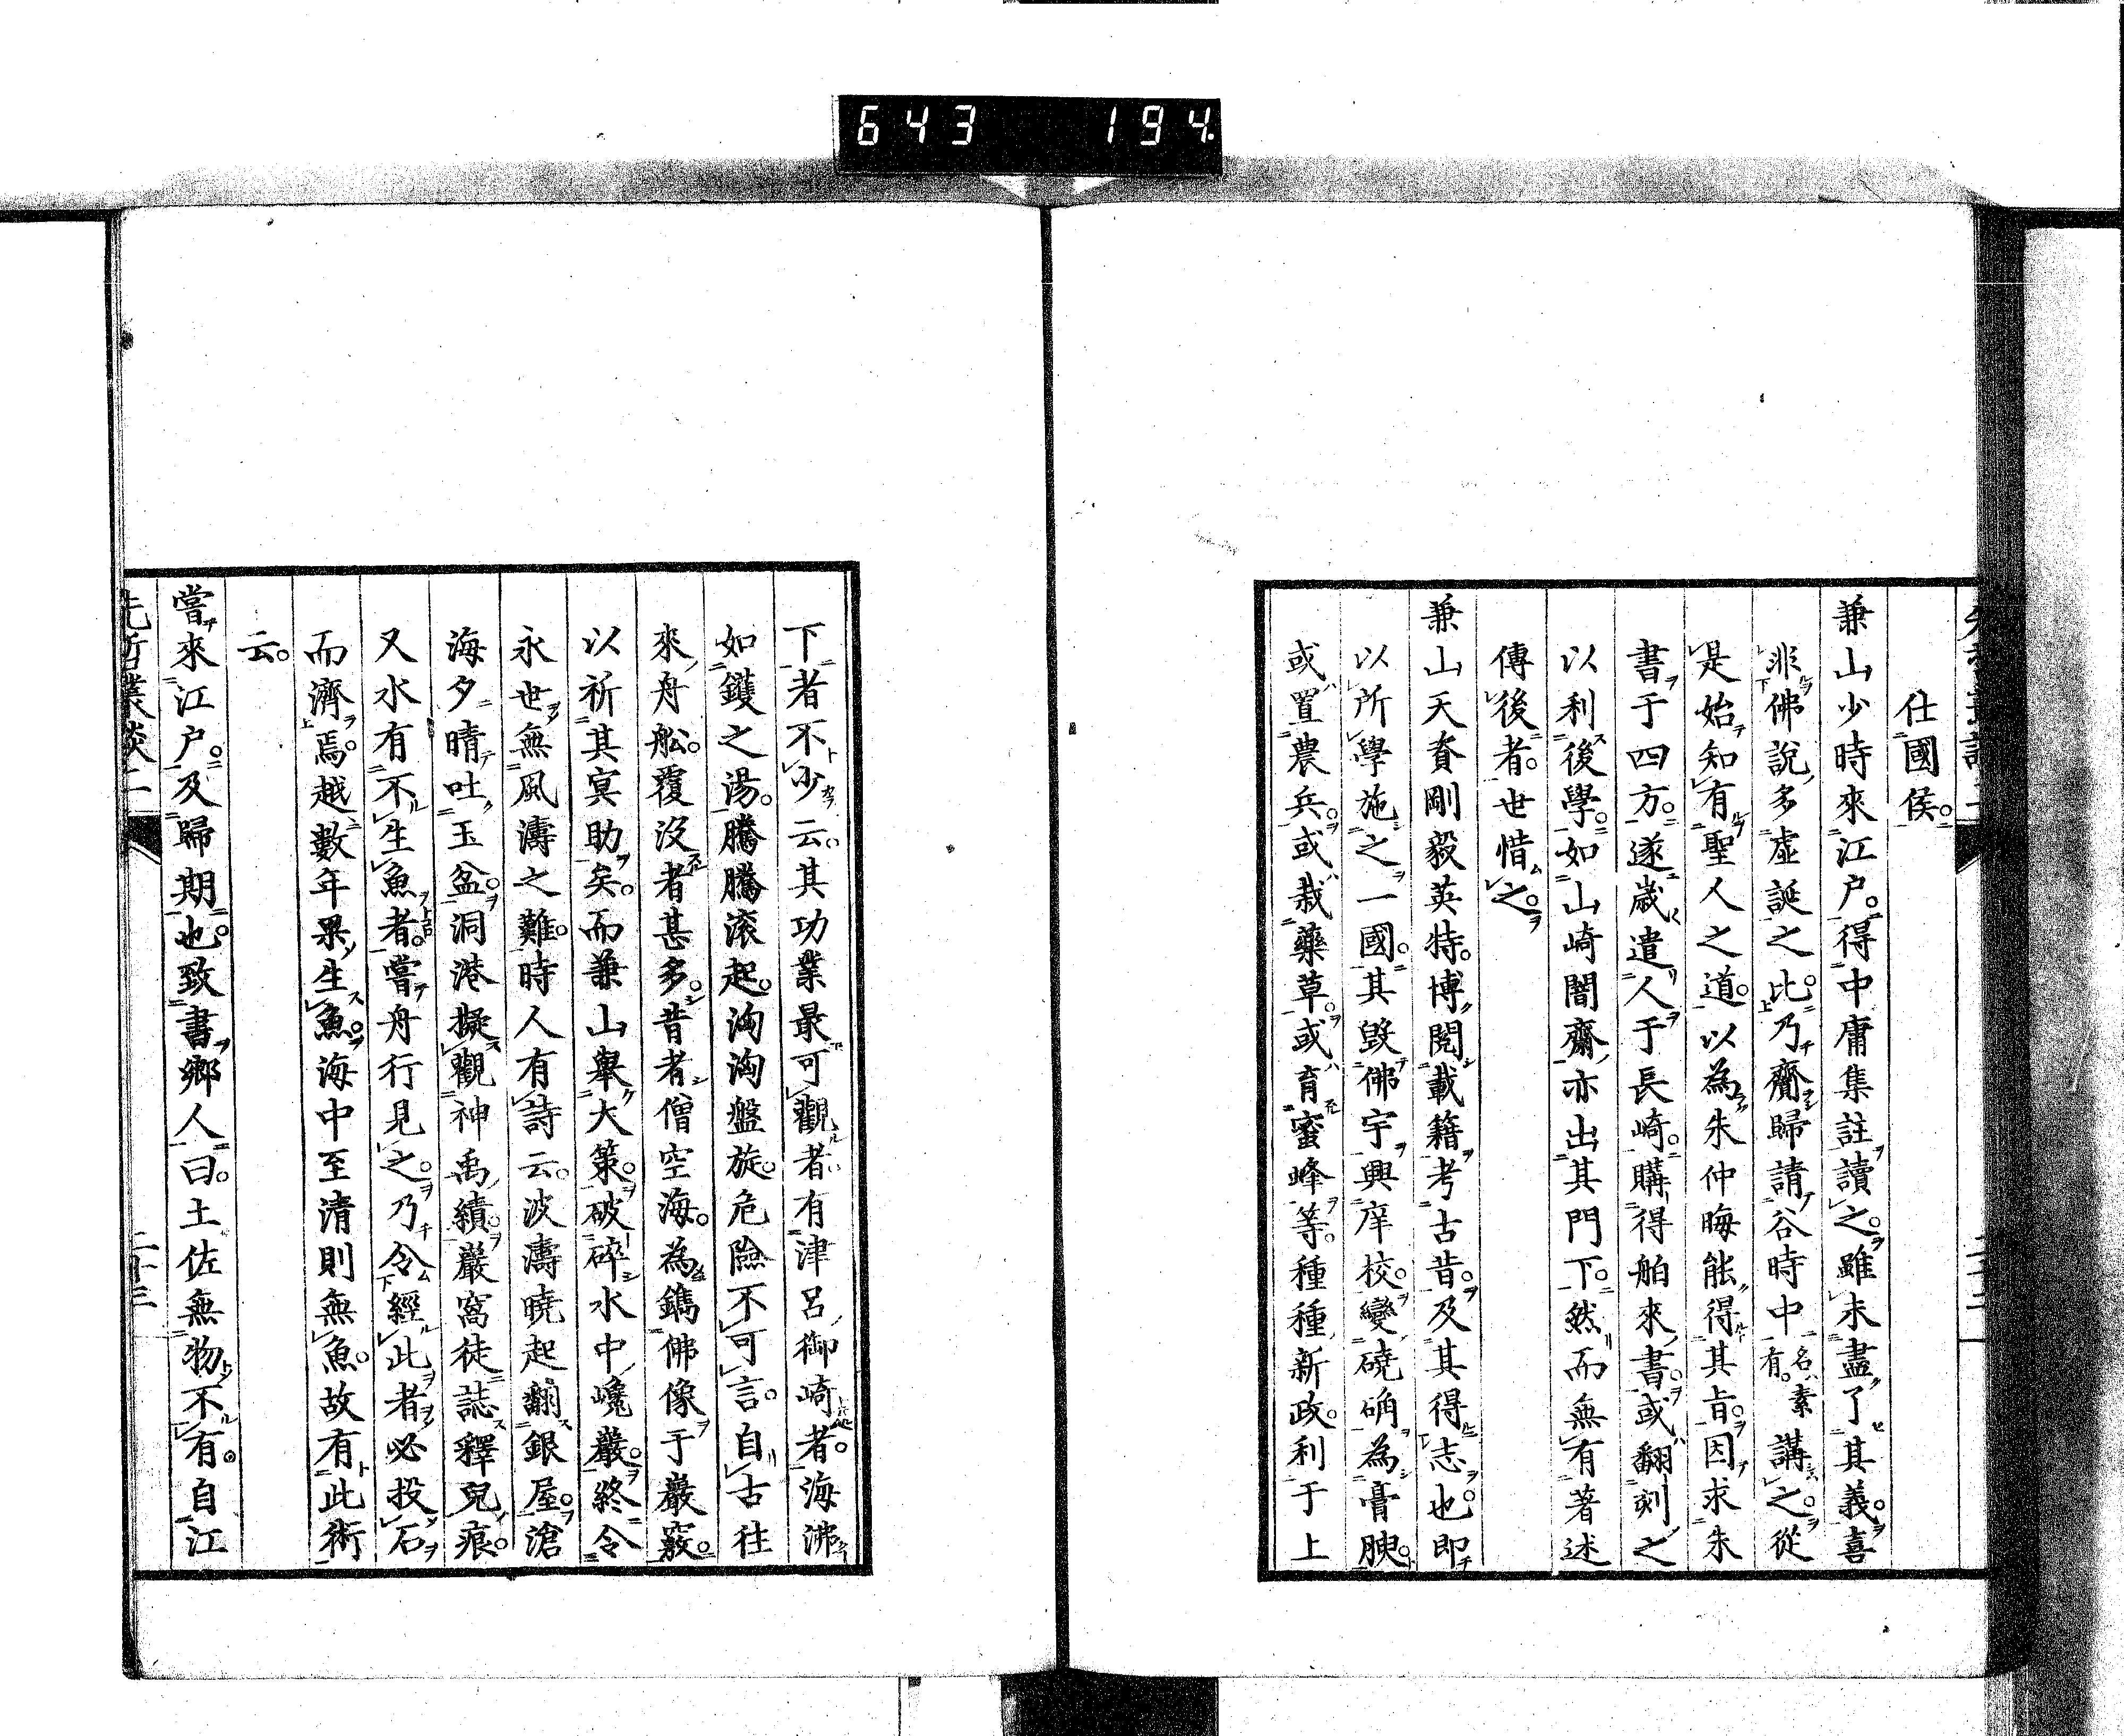 643 194
仕國侯。
兼山少時來江戶。得中庸集註讀之。雖未盡了其義。喜
非佛說多虛誕之比。乃齎歸請谷時中名素有。講之。從
是始知有聖人之道。以為朱仲晦能得其旨。因求朱
書于四方。遂歲遣人于長崎。購得舶來書。或翻刻之
以利後學。如山崎闇齋亦出其門下。然而無有著述
傳後者。世惜之。
兼山天資剛毅英特。博閱載籍考古昔。及其得志也。即
以所學施之一國。其毀佛宇興庠校。變磽确為膏腴。
或置農兵。或栽藥草。或育蜜蜂等。種種新政。利于上
下者不少云。其功業最可觀者有津呂御崎者。海沸
如鑊之湯。騰騰滾起。洶洶盤旋。危險不可言。自古往
來舟舩。覆沒者甚多。昔者僧空海。為鐫佛像于巖竅。
以祈其冥助矣。而兼山舉大策。破碎水中巉巖。終令
永世無風濤之難。時人有詩云。波濤曉起翻銀屋。滄
海夕晴吐玉盆。洞港擬觀神禹績。巖窩徒誌釋兒痕。
又水有不生魚者。嘗舟行見之。乃令經此者必投石
而濟焉。越數年果生魚。海中至清則無魚。故有此術
云。
嘗來江戶。及歸期也。致書鄉人曰。土佐無物不有。自江
先哲叢談二
二十三